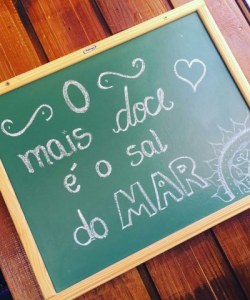 O
mais doce
é o sal
do MAR